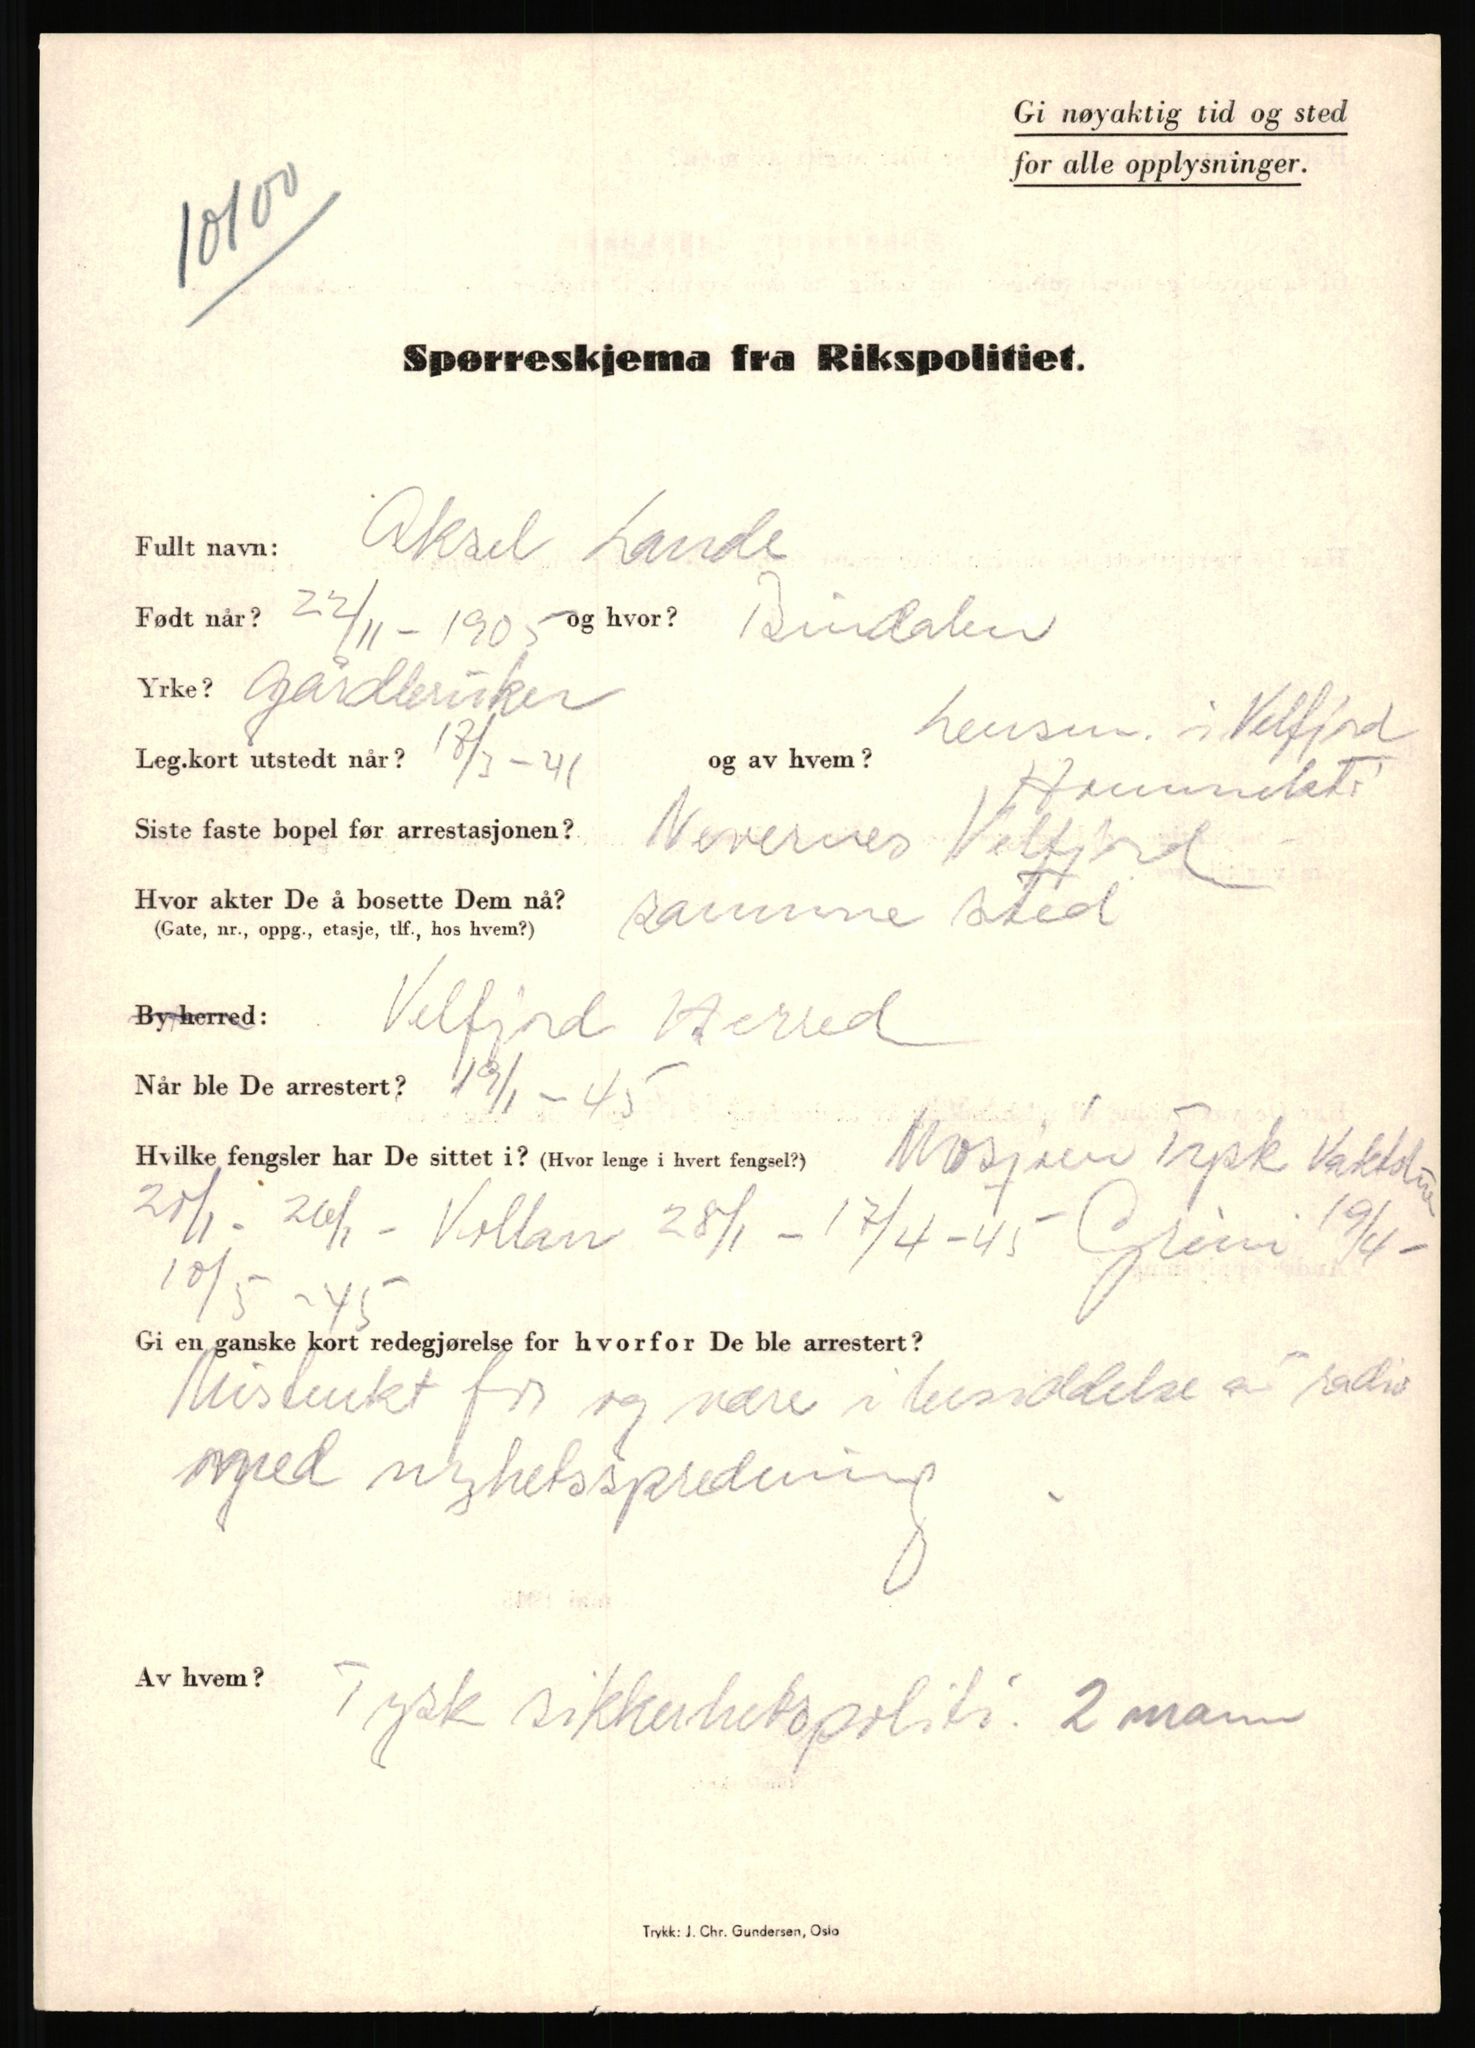 Gi nøyaktig tid og sted
for alle opplysninger.
10100
Spørreskjema fra Rikspolitiet.
Fullt navn: Aksel Lande
Født når? 22/11 - 1905 og hvor? Bindalen
Yrke? Gårdbruker
Leg.kort utstedt når? 18/3 - 41 og av hvem? Lensm. i Velfjord
Hommelstø
Siste faste bopel før arrestasjonen? Nevernes Velfjord
Hvor akter De å bosette Dem nå? samme sted
(Gate, nr., oppg., etasje, tlf., hos hvem?)
By-herred: Velfjord Herred
Når ble De arrestert? 19/1 - 45
Hvilke fengsler har De sittet i? (Hvor lenge i hvert fengsel?) Mosjøen Tysk Vaktstue
20/1 - 26/1 - Vollan 28/1 - 17/4 - 45 Grini 19/4 -
10/5 - 45
Gi en ganske kort redegjørelse for hvorfor De ble arrestert?
Mistenkt for og være i besiddelse av radio
og nyhetsspredning
Av hvem? Tysk sikkerhetspoliti. 2 mann
Trykk: J. Chr. Gundersen, Oslo